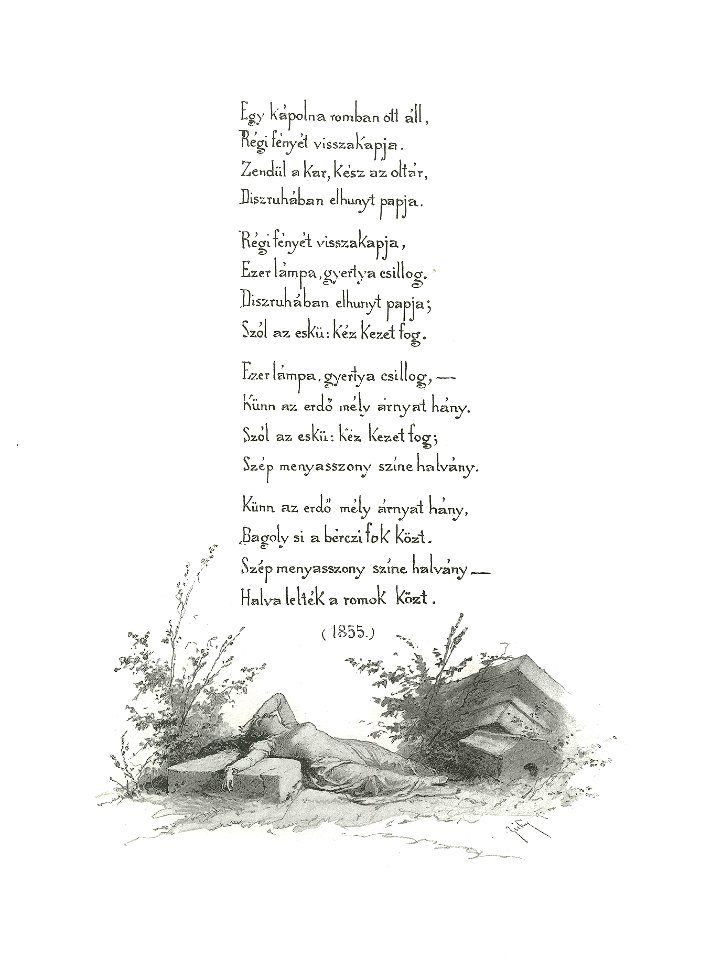 Egy kápolna romban ott áll,
Régi fényét visszakapja.
Zendül a kar, kész az oltár,
Diszruhában elhunyt papja.
Régi fényét visszakapja,
Ezer lámpa, gyertya csillog.
Diszruhában elhunyt papja;
Szól az eskü: kéz kezet fog.
Ezer lámpa, gyertya csillog, —
Künn az erdő mély árnyat hány.
Szól az eskü: kéz kezet fog;
Szép menyasszony színe halvány.
Künn az erdő mély árnyat hány,
Bagoly si a bérczi fok közt.
Szép menyasszony színe halvány —
Halva lelték a romok közt.
(1855.)